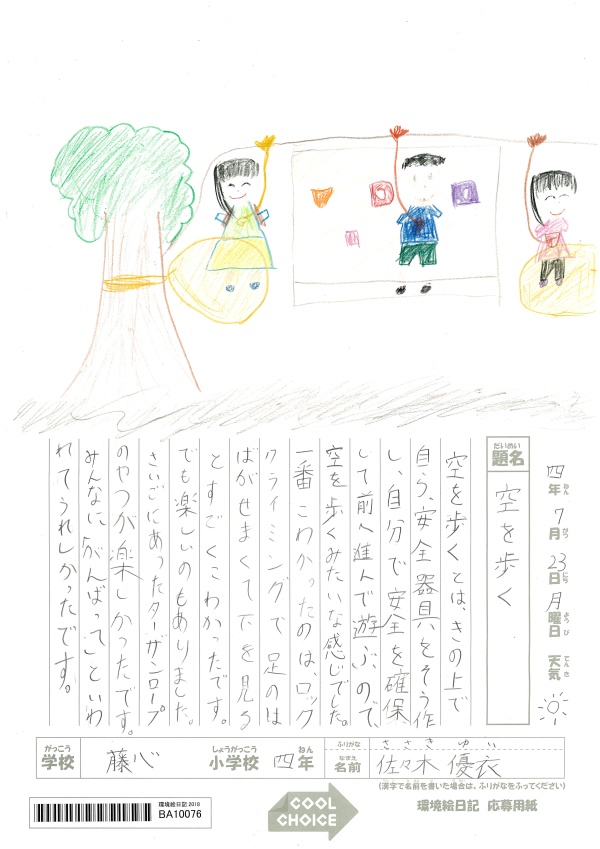 四年 7月 23日 月曜日 天気
題名 空を歩く
空を歩くとは、きの上で
自ら、安全器具をそう作
し、自分で安全を確保
して前へ進んで遊ぶので、
空を歩くみたいな感じでした。
一番こわかったのは、ロック
クライミングで足のは
ばがせまくて下を見る
とすごくこわかったです。
でも楽しいのもありました。
さいごにあったターザンロープ
のやつが楽しかったです。
みんなに、「がんばって」といわ
れてうれしかったです。
学校 藤心 小学校 四年
ささき ゆい
名前 佐々木 優衣
(漢字で名前を書いた場合は、ふりがなをふってください)
環境絵日記2018
BA10076
COOL
CHOICE
環境絵日記 応募用紙